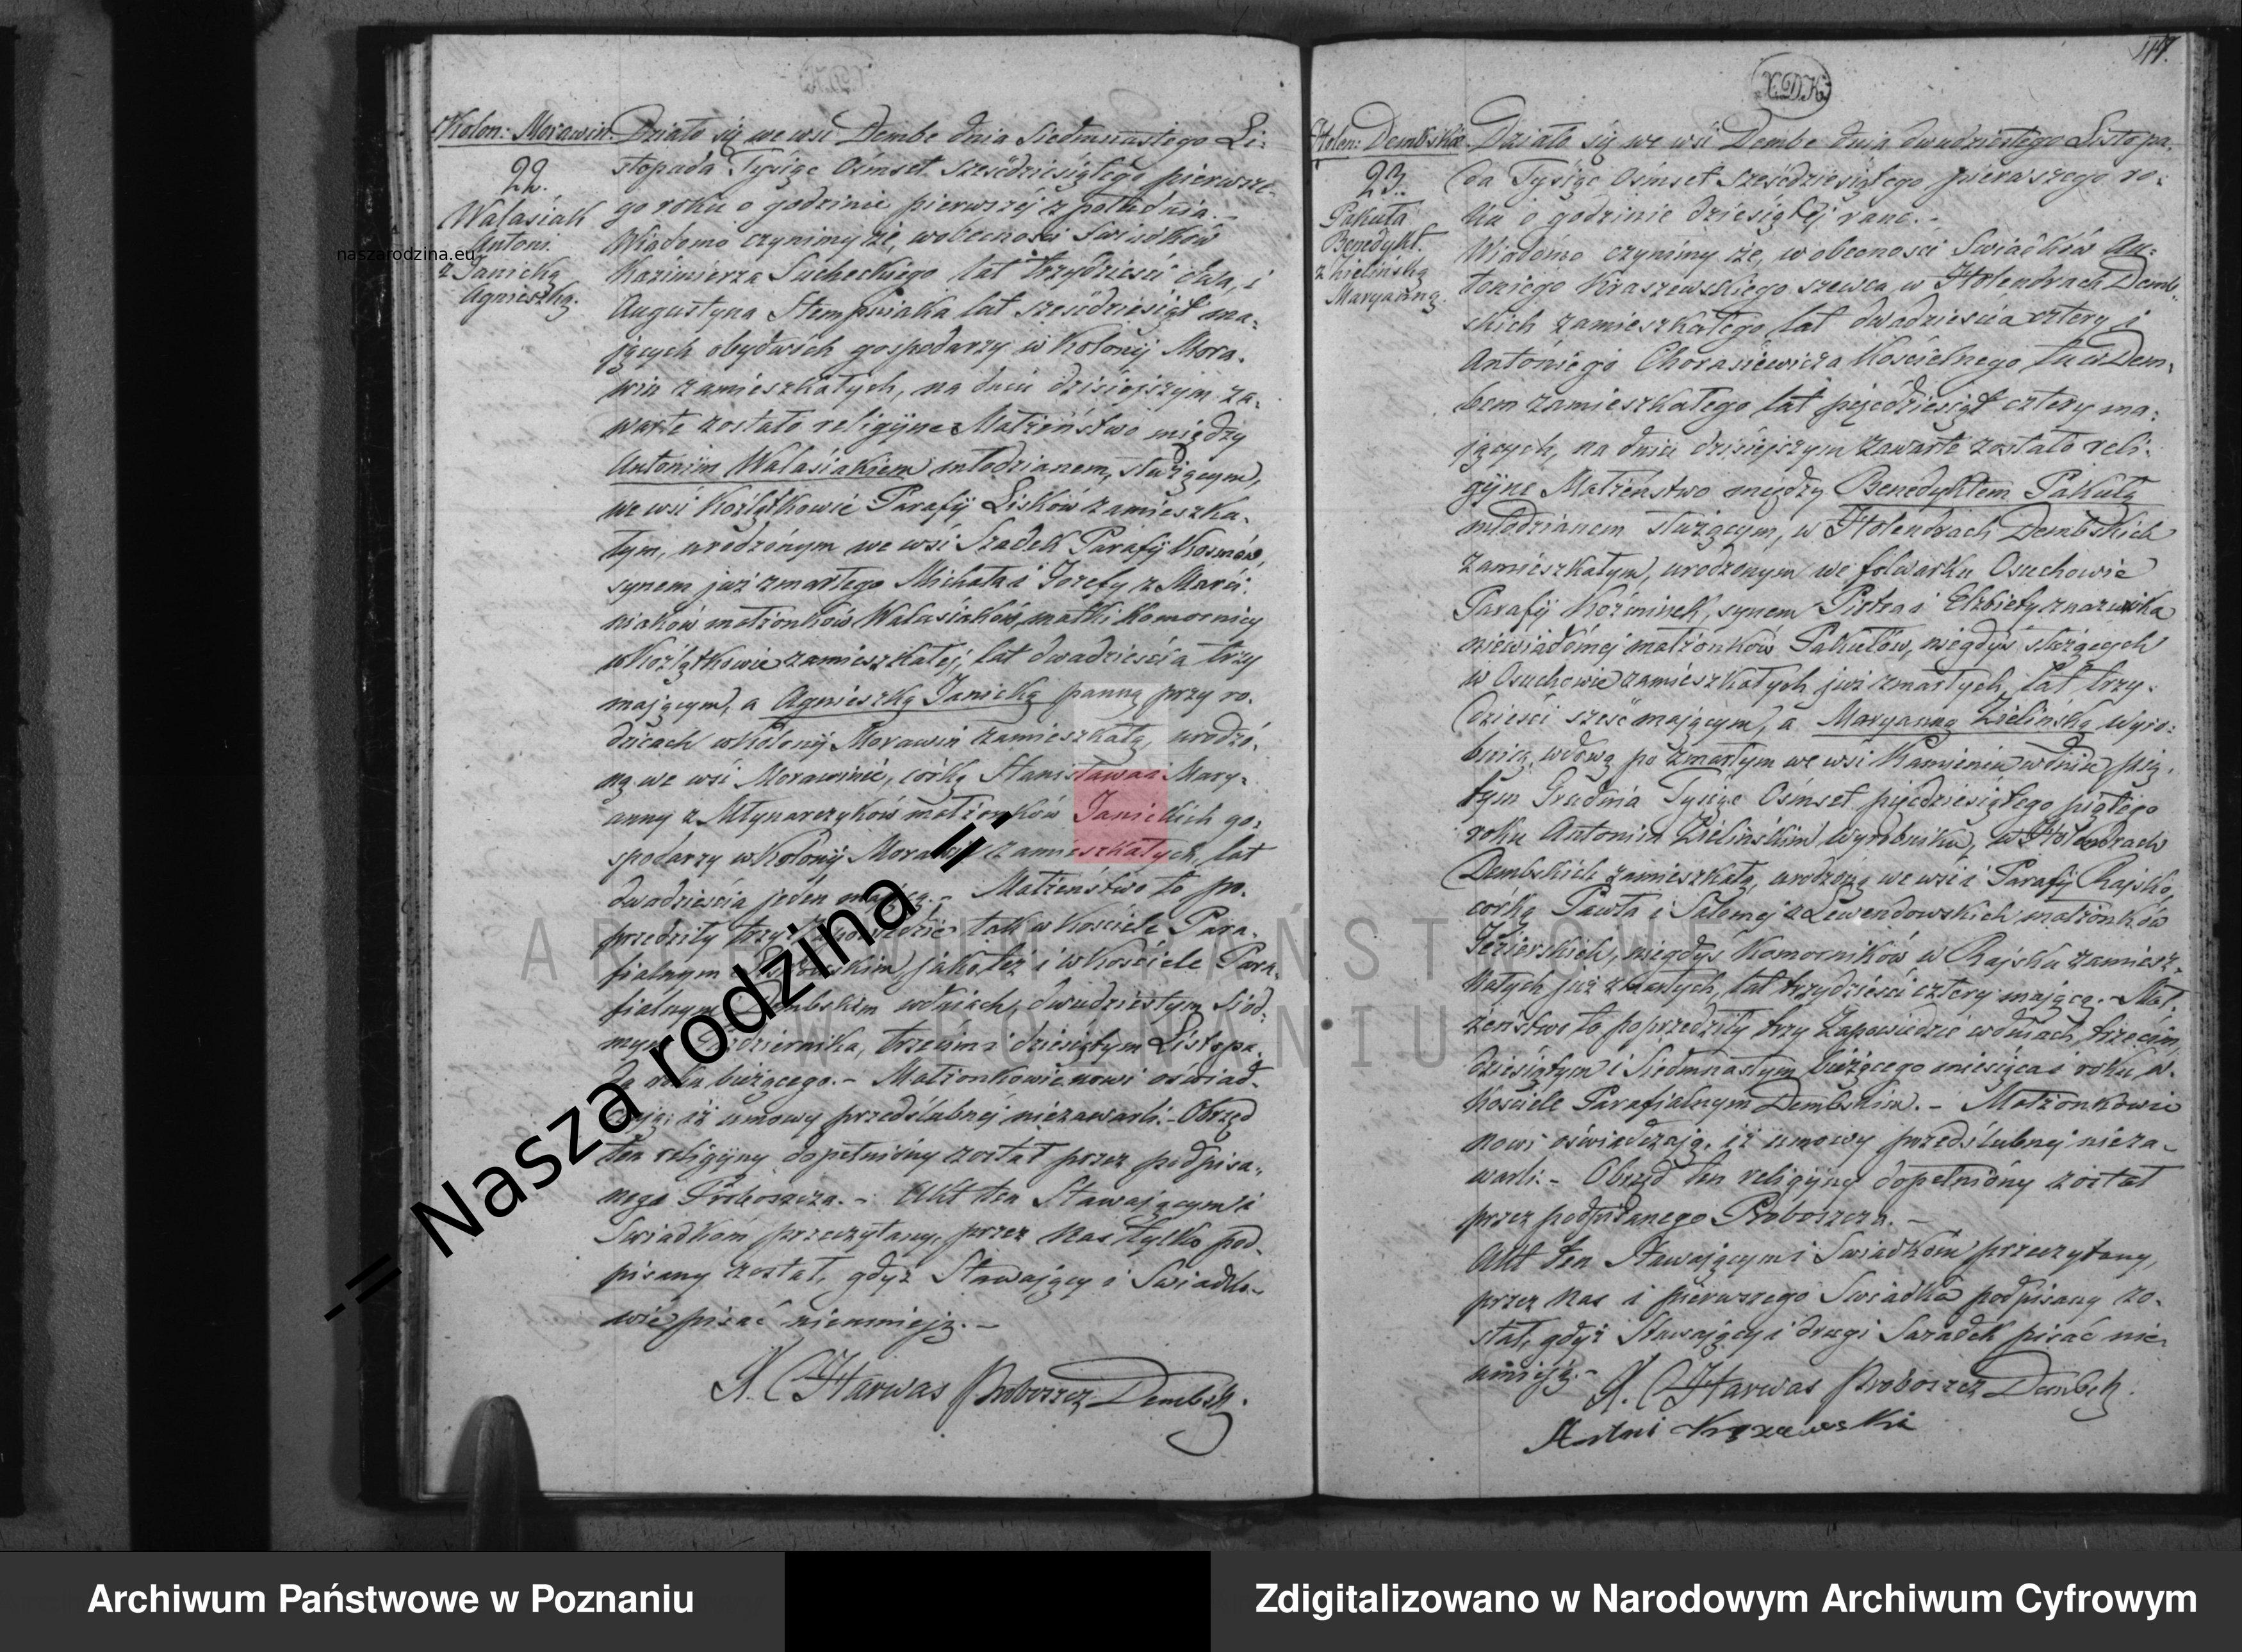 Kolon: Morawin.
22.
Walasiak
Antoni.
z Janicką
Agnieszką.
Działo się we wsi Dembe dnia Siedmnastego Li-
stopada Tysiąc Ośmset sześćdziesiątego pierwsze-
go roku o godzinie pierwszéj z południa.-
Wiadomo czynimy że, wobecności świadków
Kazimierza Sucheckiego lat trzydzieści dwa, i
Augustyna Stempniaka lat sześćdziesiąt ma-
jących obydwóch gospodarzy w Kolonij Mora-
win zamieszkałych, na dniu dzisiejszym za-
warte zostało religijne Małżeństwo między
Antonim Walasiakiem młodzianem, służącym,
we wsi Koźlątkowie Parafij Lisków zamieszka-
łym, urodzonym we wsi Szadek Parafij Kosmów,
synem już zmarłego Michała i Józefy z Marci-
niaków małżonków Walasiaków, matki komornicy
w Koźlątkowie zamieszkałéj, lat dwadzieścia trzy
mającym, a Agnieszką Janicką panną przy ro-
dzicach w Kolonij Morawin zamieszkałą, urodzo-
ną we wsi Morawinie, córką Stanisława i Mary-
anny z Młynarczyków małżonków Janickich go-
spodarzy w Kolonij Morawin zamieszkałych, lat
dwadzieścia jeden mającą.- Małżeństwo to po-
przedziły trzy Zapowiedzie tak w Kościele Para-
fialnym jako też i w Kościele Para-
fialnym Dembskim w dniach, dwudziestym siód-
mym Października, trzecim i dziesiątym Listopa-
da roku bieżącego.- Małżonkowie nowi oświad-
czają, iż umowy przedślubnéj niezawarli.- Obrzęd
ten religijny dopełniony został przez podpisa-
nego Proboszcza.- Akt ten Stawającym i
Swiadkom przeczytany, przez nas tylko pod-
pisany został, gdyż Stawający i Swiadko-
wie pisać nieumieją.-
X. Harwas Proboszcz Dembsk.
117.
X.D.K.
Holen: Dembskie
23.
Pakuła
Benedykt.
z Zielińską
Maryanną.
Działo się we wsi Dembe dnia dwudziestego Listopa-
da Tysiąc Ośmset sześćdziesiątego pierwszego ro-
ku o godzinie dziesiątéj rano.-
Wiadomo czynimy że, w obecności Swiadków An-
toniego Kraszewskiego szewca, w Holendrach Demb-
skich zamieszkałego lat dwadzieścia cztery i
Antoniego Chorasiewicza Kościelnego tu w Dem-
bem zamieszkałego lat pięćdziesiąt cztery ma-
jących, na dniu dzisiejszym zawarte zostało reli-
gijne Małżeństwo między Benedyktem Pakułą
młodzianem służącym, w Holendrach Dembskich
zamieszkałym, urodzonym we folwarku Osuchowie
Parafij Koźminek, synem Piotra i Elżbiety z nazwiska
niewiadoméj małżonków Pakułów, niegdyś służących
w Osuchowie zamieszkałych już zmarłych, lat trzy-
dzieści sześć mającym, a Maryanną Zielińską wyro-
bnicą, wdową po zmarłym we wsi Kamieniu w dniu pią-
tym Grudnia Tysiąc Ośmset pięćdziesiątego piątego
roku Antonim Zielińskim wyrobniku, w Holendrach
Dembskich zamieszkałą, urodzoną we wsi i Parafij Rajsko,
córką Pawła i Salomeji z Lewendowskich małżonków
Jezierskich, niegdyś Komorników w Rajsku zamiesz-
kałych już zmarłych, lat trzydzieści cztery mającą.- Mał-
żeństwo to poprzedziły trzy Zapowiedzie w dniach, trzecim,
dziesiątym i Siedmnastym bieżącego miesiąca i roku w
Kościele Parafialnym Dembskim.- Małżonkowie
nowi oświadczają, iż umowy przedślubnéj nieza-
warli.- Obrzęd ten religijny dopełniony został
przez podpisanego Proboszcza.-
Akt ten Stawającym i Swiadkom przeczytany,
przez nas i pierwszego Swiadka podpisany zo-
stał, gdyż Stawający i drugi Swiadek pisać nie
umieją.-
X. Harwas Proboszcz Dembsk.
naszarodzina.eu
-= Nasza rodzina =-
ARCHIWUM PAŃSTWOWE
W POZNANIU
Archiwum Państwowe w Poznaniu
Zdigitalizowano w Narodowym Archiwum Cyfrowym